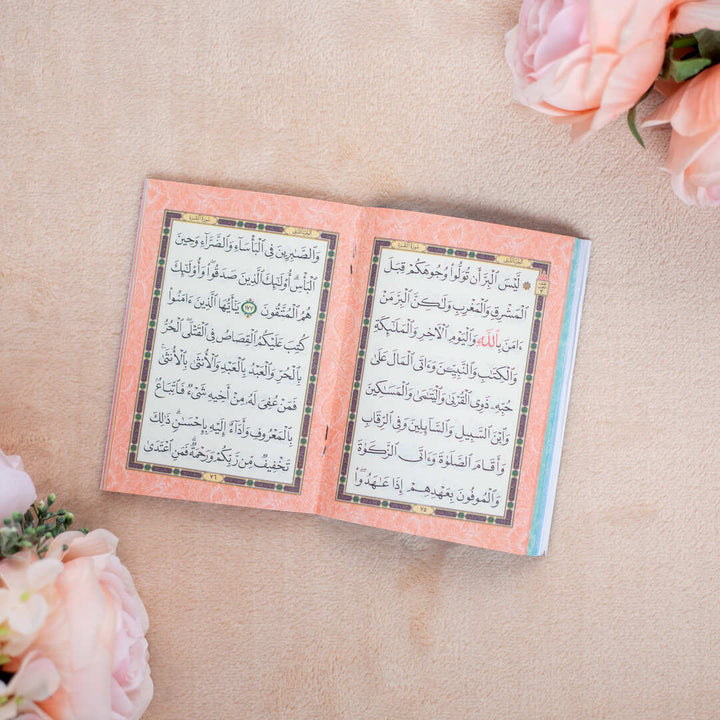 لَّيْسَ ٱلْبِرَّ أَن تُوَلُّوا۟ وُجُوهَكُمْ قِبَلَ
ٱلْمَشْرِقِ وَٱلْمَغْرِبِ وَلَـٰكِنَّ ٱلْبِرَّ مَنْ
ءَامَنَ بِٱللَّهِ وَٱلْيَوْمِ ٱلْـَٔاخِرِ وَٱلْمَلَـٰٓئِكَةِ
وَٱلْكِتَـٰبِ وَٱلنَّبِيِّـۧنَ وَءَاتَى ٱلْمَالَ عَلَىٰ
حُبِّهِۦ ذَوِى ٱلْقُرْبَىٰ وَٱلْيَتَـٰمَىٰ وَٱلْمَسَـٰكِينَ
وَٱبْنَ ٱلسَّبِيلِ وَٱلسَّآئِلِينَ وَفِى ٱلرِّقَابِ
وَأَقَامَ ٱلصَّلَوٰةَ وَءَاتَى ٱلزَّكَوٰةَ
وَٱلْمُوفُونَ بِعَهْدِهِمْ إِذَا عَـٰهَدُوا۟
٧٥
وَٱلصَّـٰبِرِينَ فِى ٱلْبَأْسَآءِ وَٱلضَّرَّآءِ وَحِينَ
ٱلْبَأْسِ أُو۟لَـٰٓئِكَ ٱلَّذِينَ صَدَقُوا۟ وَأُو۟لَـٰٓئِكَ
هُمُ ٱلْمُتَّقُونَ ١٧٧ يَـٰٓأَيُّهَا ٱلَّذِينَ ءَامَنُوا۟
كُتِبَ عَلَيْكُمُ ٱلْقِصَاصُ فِى ٱلْقَتْلَى ٱلْحُرُّ
بِٱلْحُرِّ وَٱلْعَبْدُ بِٱلْعَبْدِ وَٱلْأُنثَىٰ بِٱلْأُنثَىٰ
فَمَنْ عُفِىَ لَهُۥ مِنْ أَخِيهِ شَىْءٌ فَٱتِّبَاعٌۢ
بِٱلْمَعْرُوفِ وَأَدَآءٌ إِلَيْهِ بِإِحْسَـٰنٍ ذَٰلِكَ
تَخْفِيفٌ مِّن رَّبِّكُمْ وَرَحْمَةٌ فَمَنِ ٱعْتَدَىٰ
٧٦